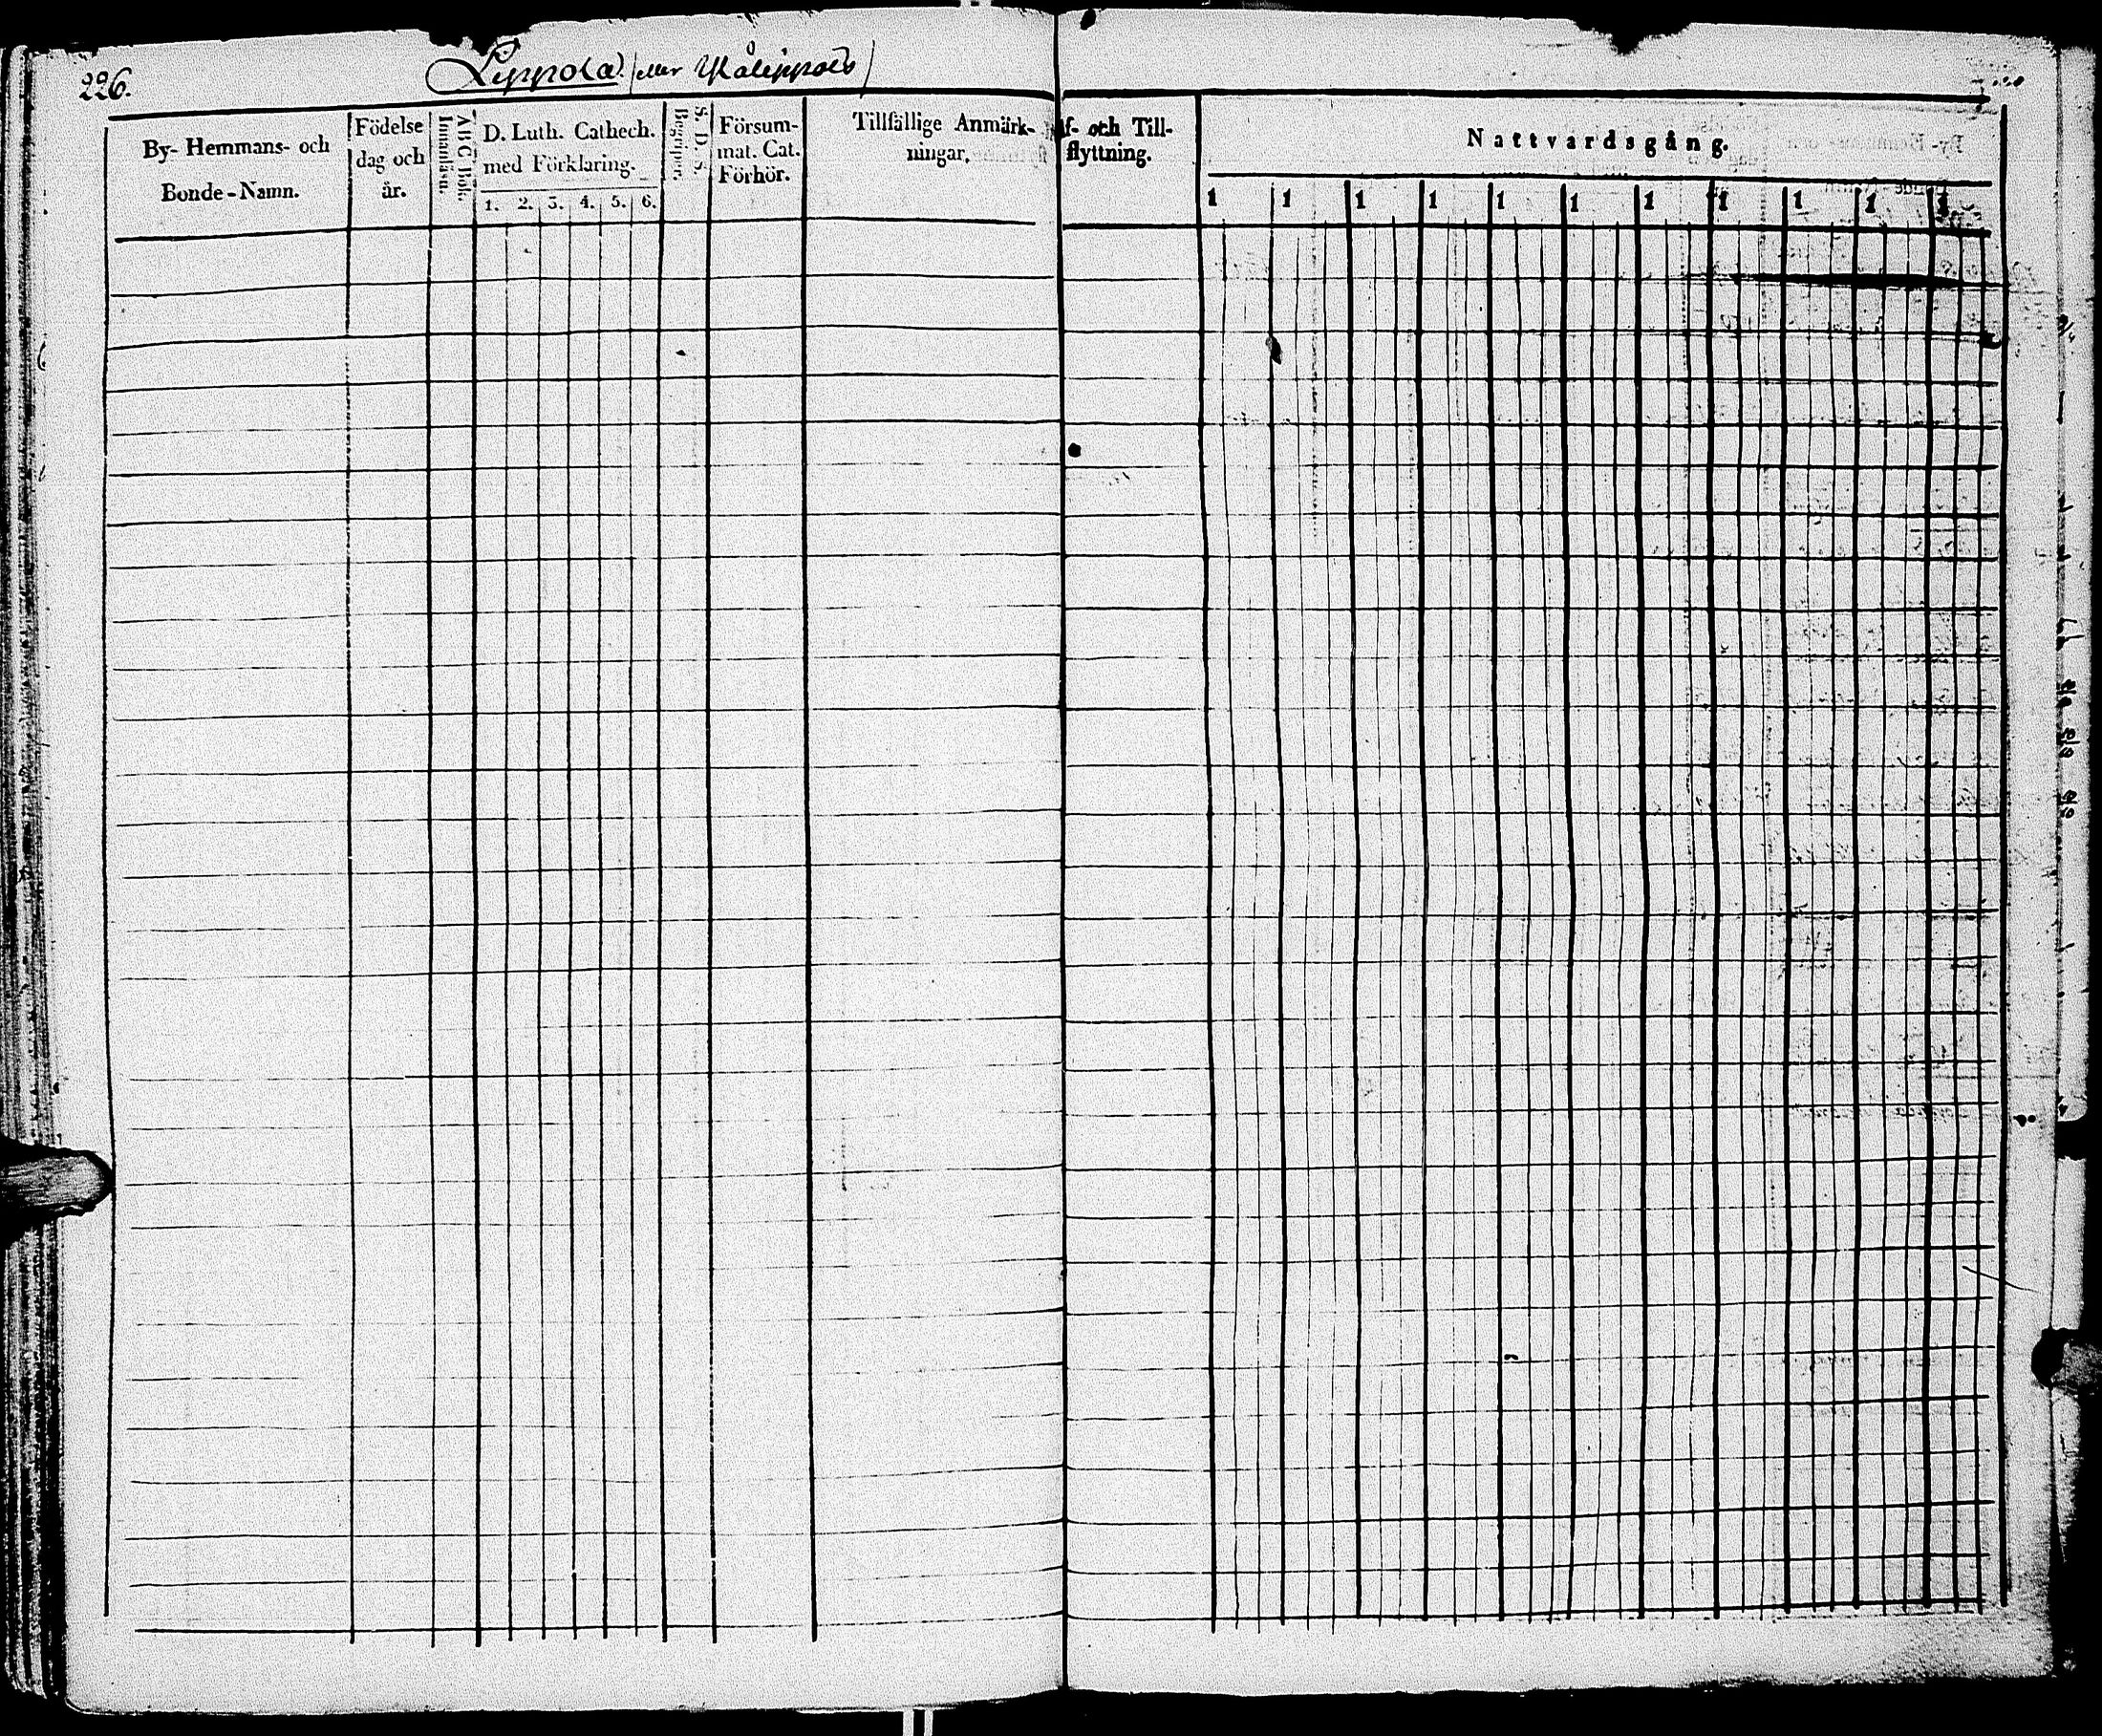 226.
Lippola (eller
By- Hemmans- och
Bonde-Namn.
Födelse
dag och
år.
ABC Bok.
Innanläsn.
D. Luth. Cathech.
med Förklaring.
1. 2. 3. 4. 5. 6.
S. D. S.
Begrepp.
Försum-
mat. Cat.
Förhör.
Tillfällige Anmärk-
ningar.
f- och Till-
flyttning.
Nattvardsgång.
1 1 1 1 1 1 1 1 1 1 1